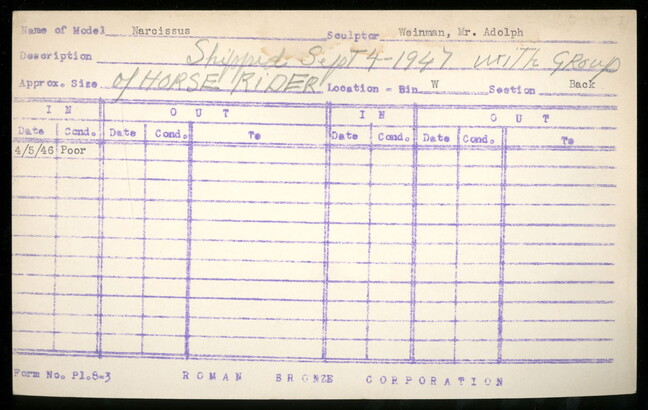 Name of Model Narcissus Sculptor Weinman, Mr. Adolph
Description Shipped Sept 4-1947 with Group
Approx. Size of HORSE RIDER Location - Bin W Section Back
IN OUT IN OUT
Date Cond. Date Cond. To Date Cond. Date Cond. To
4/5/46 Poor
Form No. Pl.8-3 ROMAN BRONZE CORPORATION